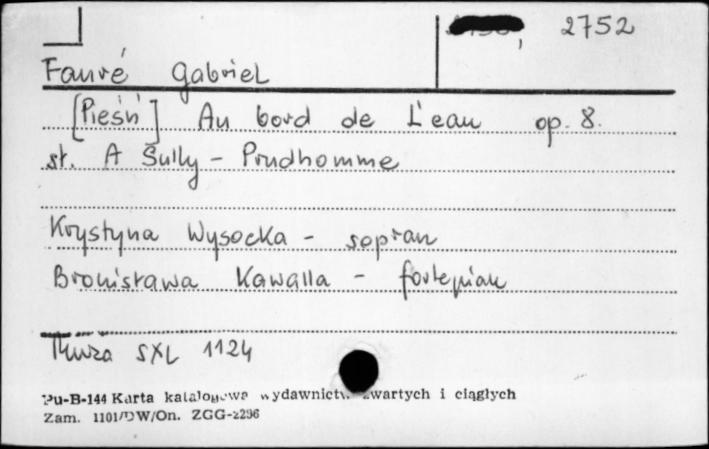 2752
Fauré Gabriel
[Pieśń] Au bord de L'eau op. 8.
sł. A Sully - Prudhomme
Krystyna Wysocka - sopran
Bronisława Kawalla - fortepian
Muza SXL 1124
Pu-B-144 Karta katalogowa wydawnictw zwartych i ciągłych
Zam. 1101/DW/On. ZGG-2296